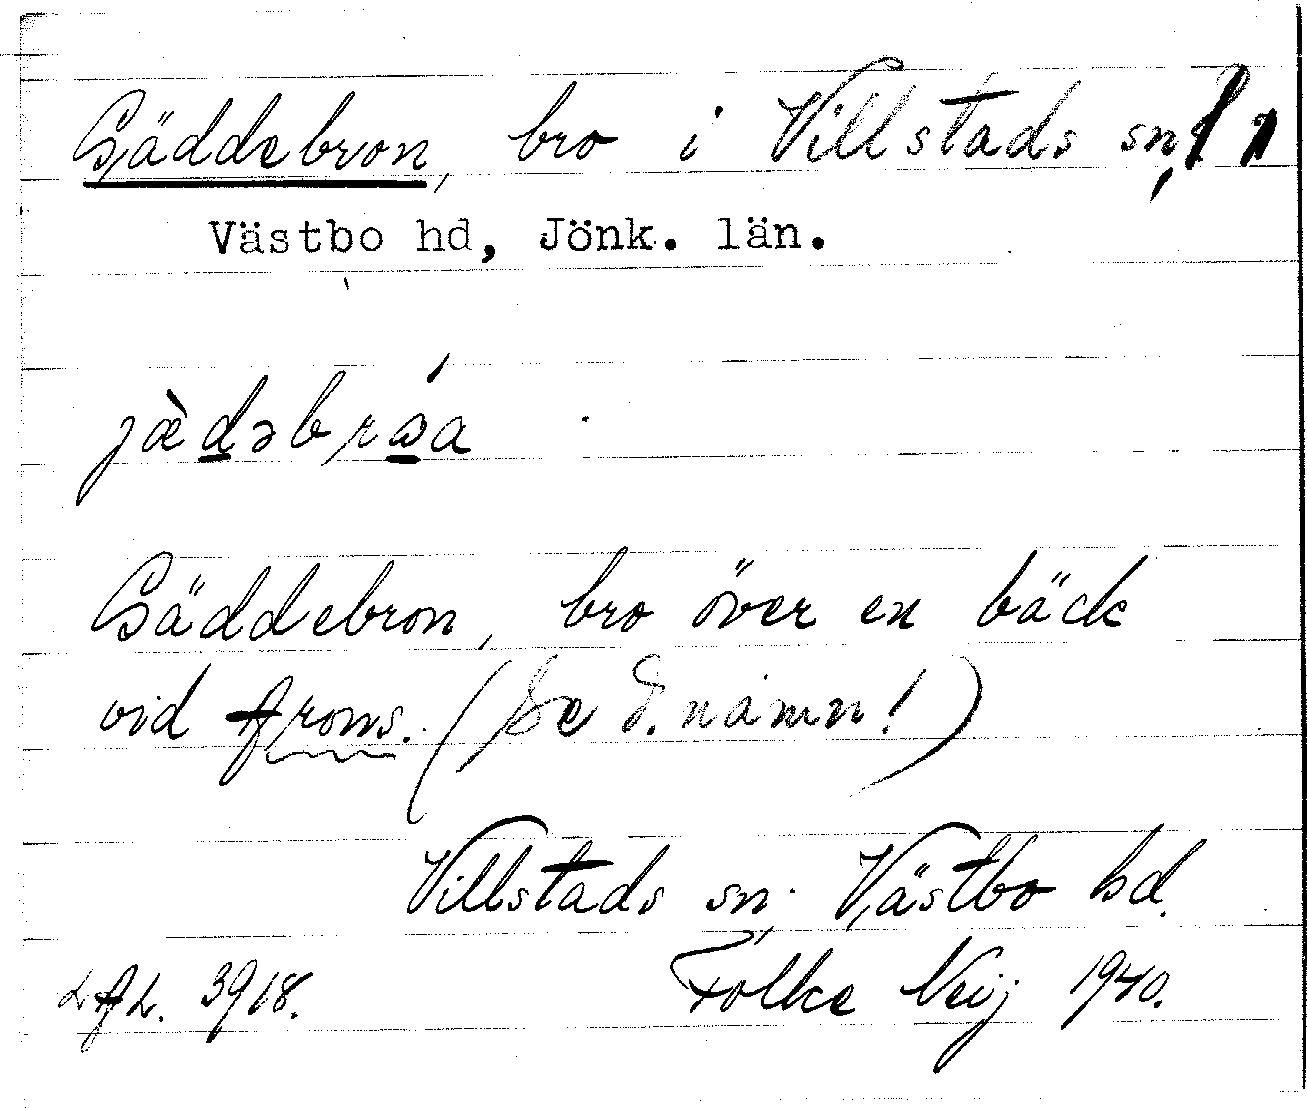 Gäddebron, bro i Villstads sn,
Västbo hd, Jönk. län.
jæ̀dəbrɷ́a
Gäddebron, bro över en bäck
vid Aroms. (Se d. namn!)
Villstads sn, Västbo hd.
LAL. 3918. Folke Neij 1940.